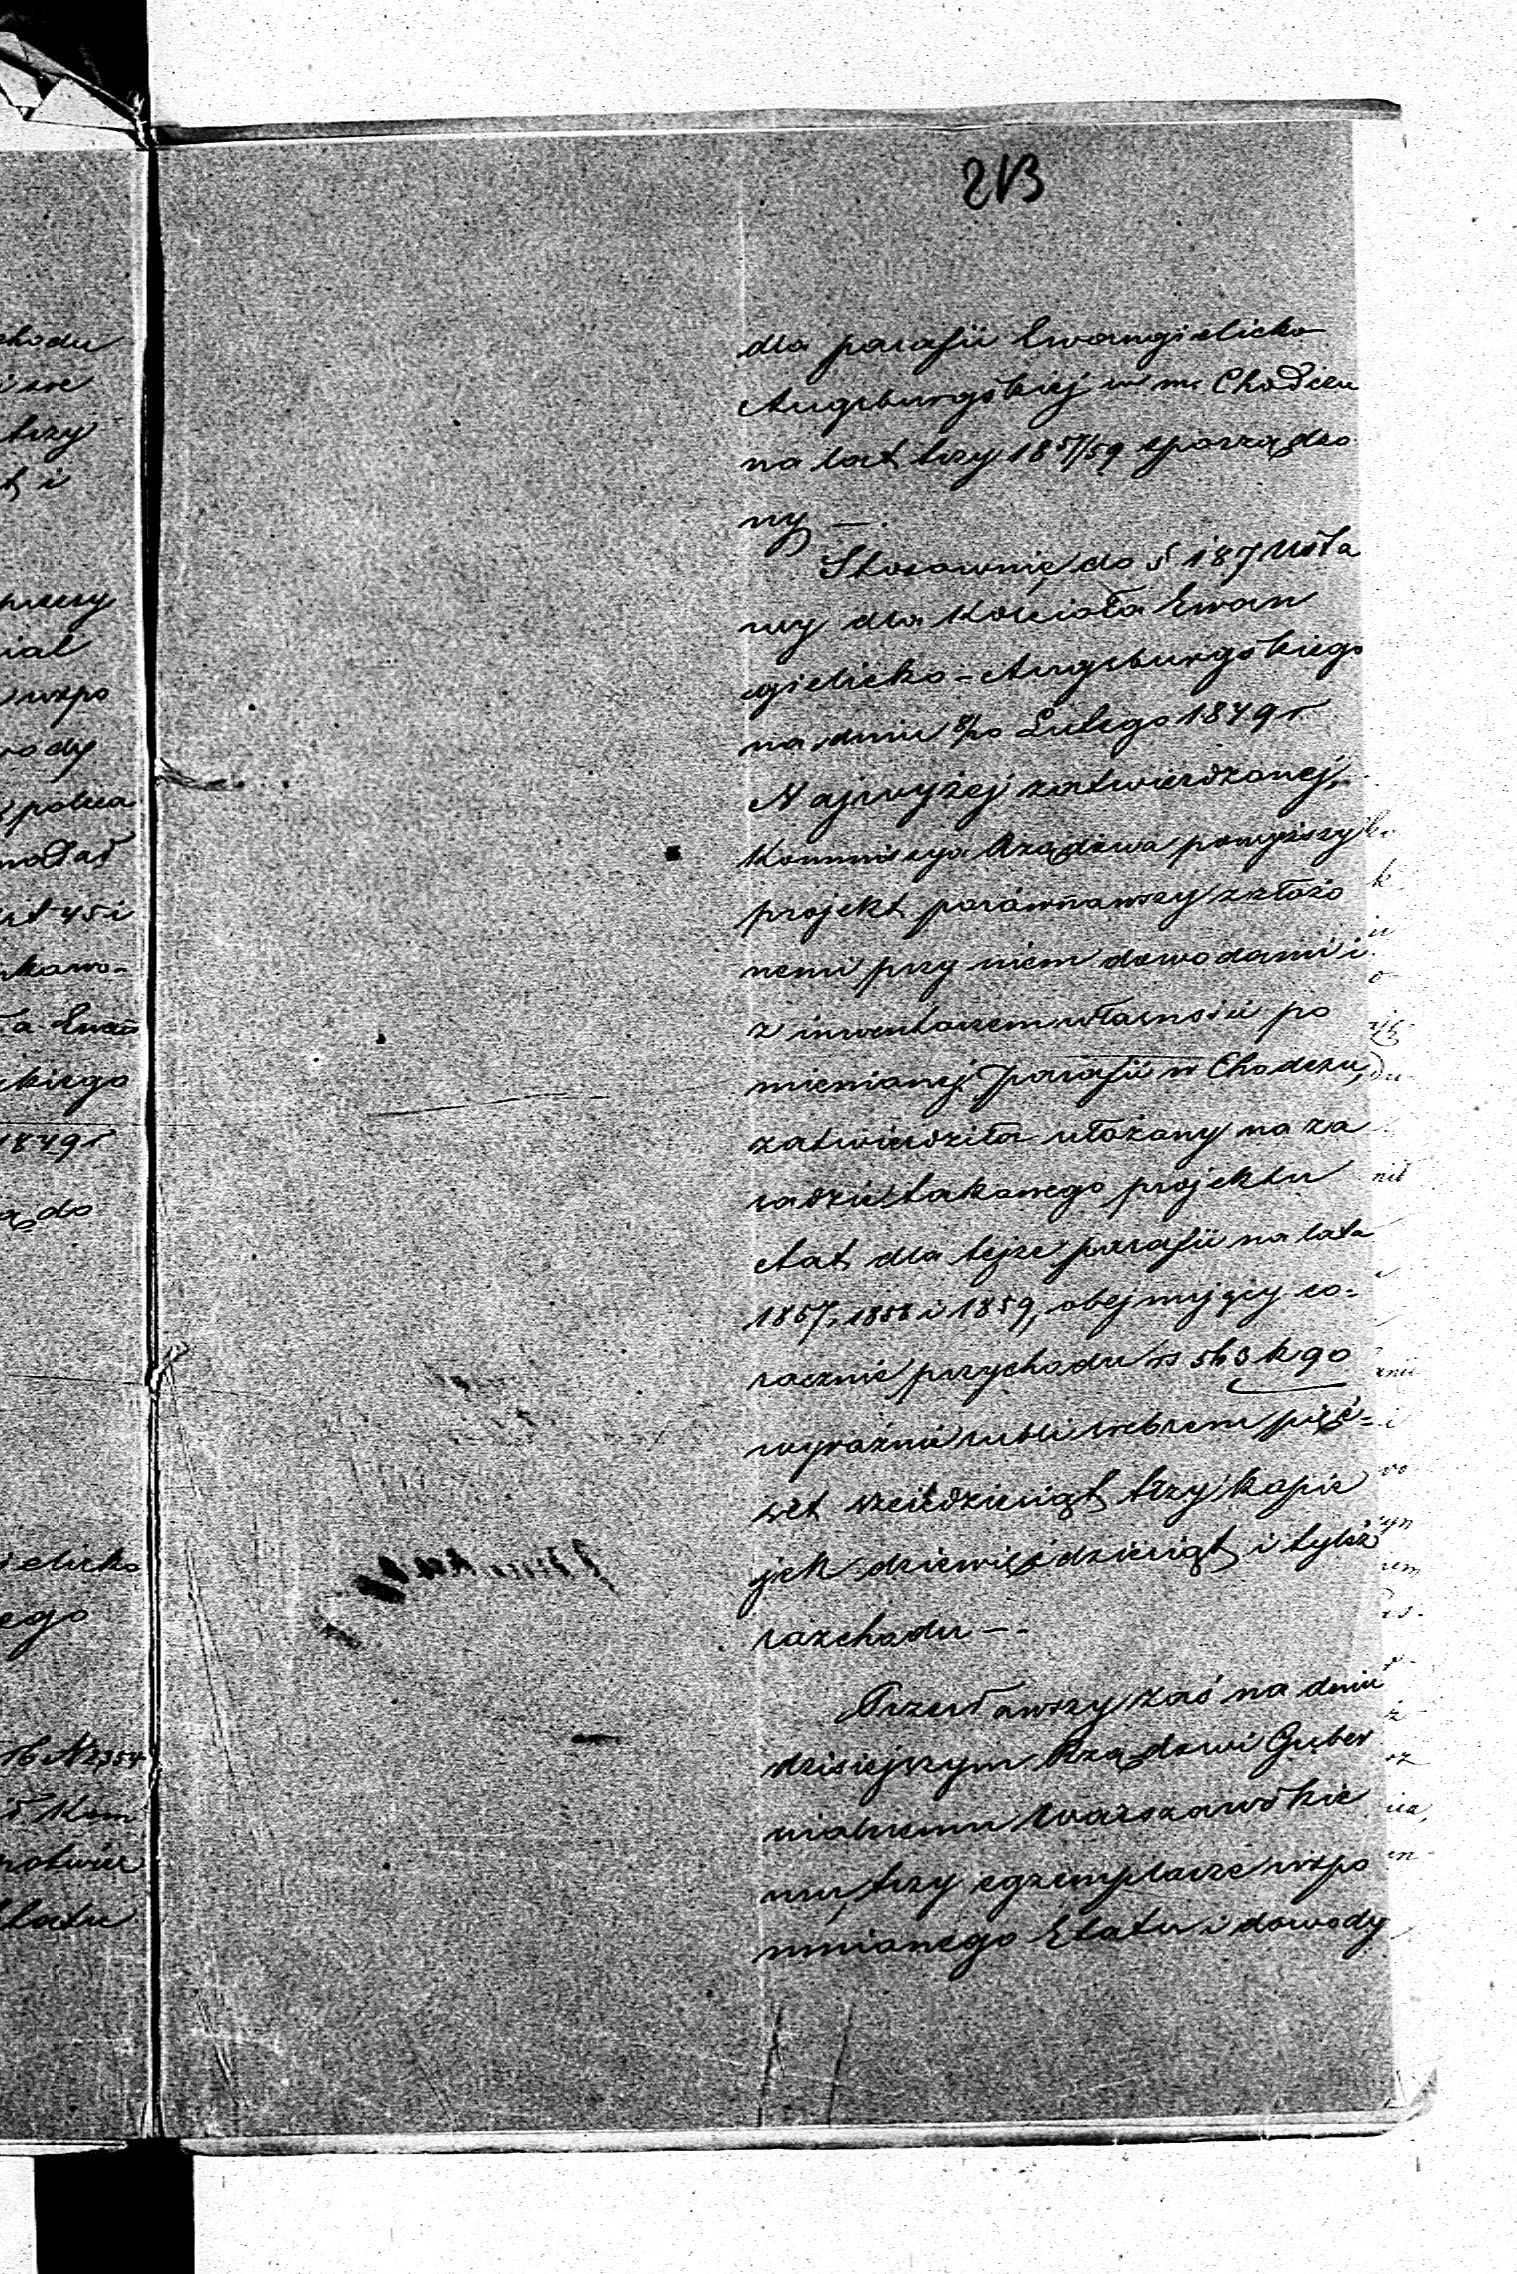 213
dla parafii Ewangielicko
Augsburgskiej w m. Chodczu
na lat trzy 1857/59 sporządzo
ny —.
Stosownie do § 187 Usta
wy dla Kościoła Ewan
gielicko-Augsburgskiego
na dniu 8/20 Lutego 1849 r
Najwyżej zatwierdzonej,
Kommissya Rządowa powyższy
projekt porównawszy z złożo
nemi przy niem dowodami i
z inwentarzem własności po
mienionej parafii w Chodczu,
zatwierdziła ułożony na za
sadzie takowego projektu
etat dla tejże parafii na lata
1857, 1858 i 1859, obejmujący co-
rocznie przychodu rs 563 k 90
wyraźnie rubli srebrem pięć-
set sześćdziesiąt trzy kopie
jek dziewięćdziesiąt i tyleż
rozchodu —.
Przesławszy zaś na dniu
dzisiejszym Rządowi Guber
nialnemu Warszawskie
mu, trzy egzemplarze wspo
mnianego Etatu i dowody
chodu
trzy
t i
wspo
wody
poleca
kiego
1849 r
do
ielicko
ego
16 N 2354
Kom
Etatu